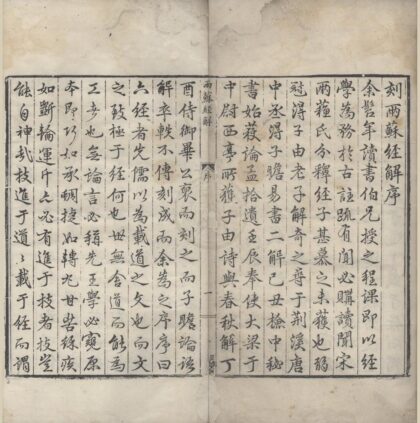 刻兩蘇經解序
余髫年讀書伯兄授之程課即以經
學為務於古註疏有聞必購讀聞宋
兩蘇氏分釋經子甚慕之未獲也弱
冠得子由老子解奇之尋于荊溪唐
中丞得子瞻易書二解己丑檢中秘
書始獲論孟拾遺壬辰奉使大梁于
中尉西亭所獲子由詩與春秋解丁
兩蘇經解 序 一
酉侍御畢公裒而刻之而子瞻論語
解卒軼不傳刻成而余為之序序曰
六經者先儒以為載道之文也而文
之致極于經何也世無舍道而能為
工者也無論言必稱先王學必窺原
本即巧如承蜩捷如轉丸甘苦徐疾
如斲輪運斤亦必有進于技者技豈
能自神哉技進于道〻載于經而謂